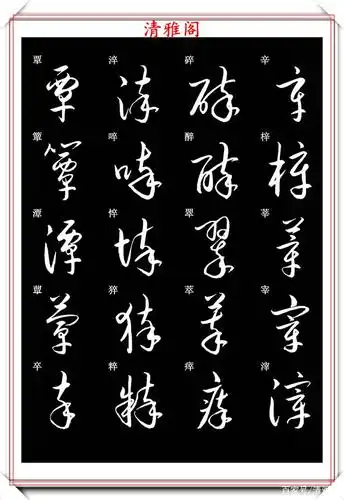 清雅阁
覃 覃
簟 簟
潭 潭
蕈 蕈
卒 卒
淬 淬
啐 啐
悴 悴
猝 猝
粹 粹
碎 碎
醉 醉
翠 翠
萃 萃
瘁 瘁
辛 辛
梓 梓
莘 莘
宰 宰
滓 滓
百家号/清